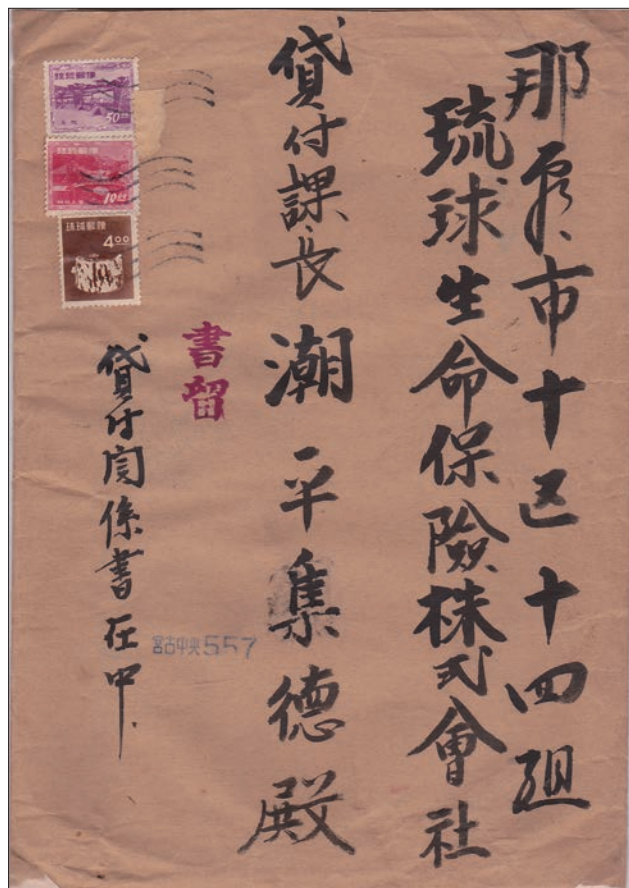 那覇市十区十四組
琉球生命保険株式會社
貸付課長 潮平集德殿
書留
貸付関係書在中
宮古中央557
琉球郵便
50
琉球郵便
10
琉球郵便
4.00